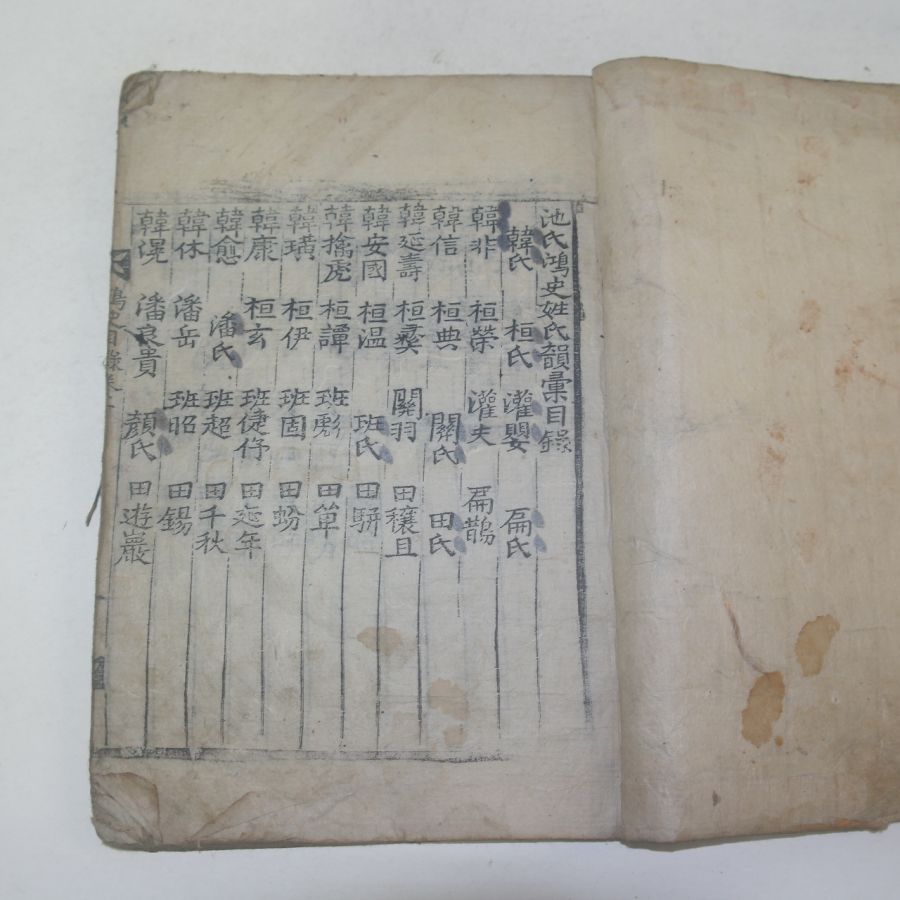 池氏鴻史姓氏韻彙目錄
韓氏 桓氏 灌嬰 扁氏
韓非 桓榮 灌夫 扁鵲
韓信 桓典 關氏 田氏
韓延壽 桓彛 關羽 田穰且
韓安國 桓温 班氏 田騈
韓擒虎 桓譚 班彪 田單
韓璜 桓伊 班固 田蚡
韓康 桓玄 班倢伃 田延年
韓愈 潘氏 班超 田千秋
韓休 潘岳 班昭 田錫
韓滉 潘良貴 顔氏 田遊巖
鴻史目錄